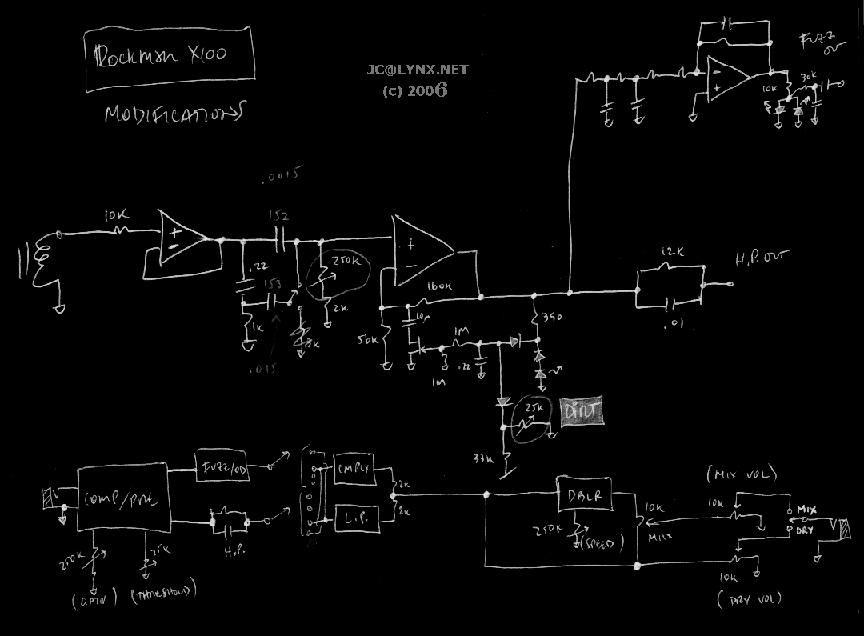 Rockman X100
MODIFICATIONS
JC@LYNX.NET
(c) 2006
FUZZ
OUT
10K
30K
.0015
10K
152
.22
153
250K
1K
2K
.015
160K
10µ
50K
1M
1M
.22
390
12K
.01
H.P. OUT
25K
DIRT
33K
COMP/PRE
FUZZ/OD
H.P.
250K
25K
(GAIN)
(THRESHOLD)
CMPLX
L.P.
2K
2K
DBLR
250K
(SPEED)
10K
MIX
(MIX VOL)
10K
MIX
DRY
10K
(DRY VOL)